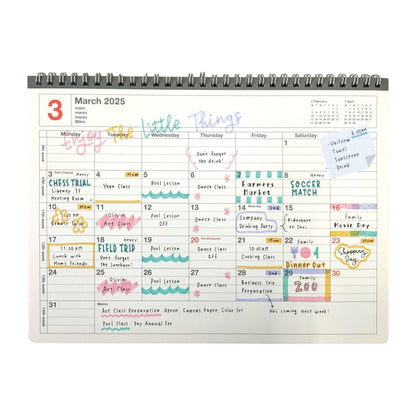 3
March 2025
mars
marzo
marzo
März
2 February
4 April
Enjoy The Little Things
Monday
Tuesday
Wednesday
Thursday
Friday
Saturday
Sunday
1
2
8:00am
- Uniform
- Towel
- Sunscreen
- Drink
Don't forget
the drink!
3
Henry
CHESS TRIAL
Library 3F
Meeting Room
4
Mom
Yoga Class
5
Pool Lesson
6
Dance Class
7
Family
Farmers
Market
8
Henry
SOCCER
MATCH
9
10
Beauty Salon
11
Olivia
Art Class
12
Pool Lesson
Off
13
Dance Class
14
Dad
Company
Drinking Party
15
Rideshare
16
Family
Movie Day
17
11:30 AM
Lunch with
Moms Friends
18
Henry
FIELD TRIP
Don't forget
the lunchbox!
19
Pool Lesson
20
Dance Class
21
Mom
10:00AM
Cooking Class
22
Family
Dinner Out
23
Mom
Shopping
Day
24
25
Olivia
Art Class
26
Pool Lesson
27
Dance Class
28
Dad
Business Trip
Preparation
29
Family
ZOO
30
31
Memo
Art Class Preparation: Apron, Canvas, Paper, Color Set
Pool Class: Pay Annual Fee
He's coming next week!